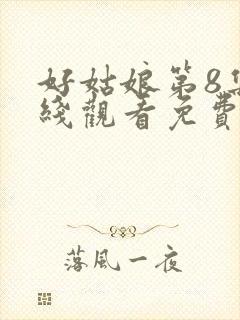 好姑娘第8集
綫觀看免費
落風一夜